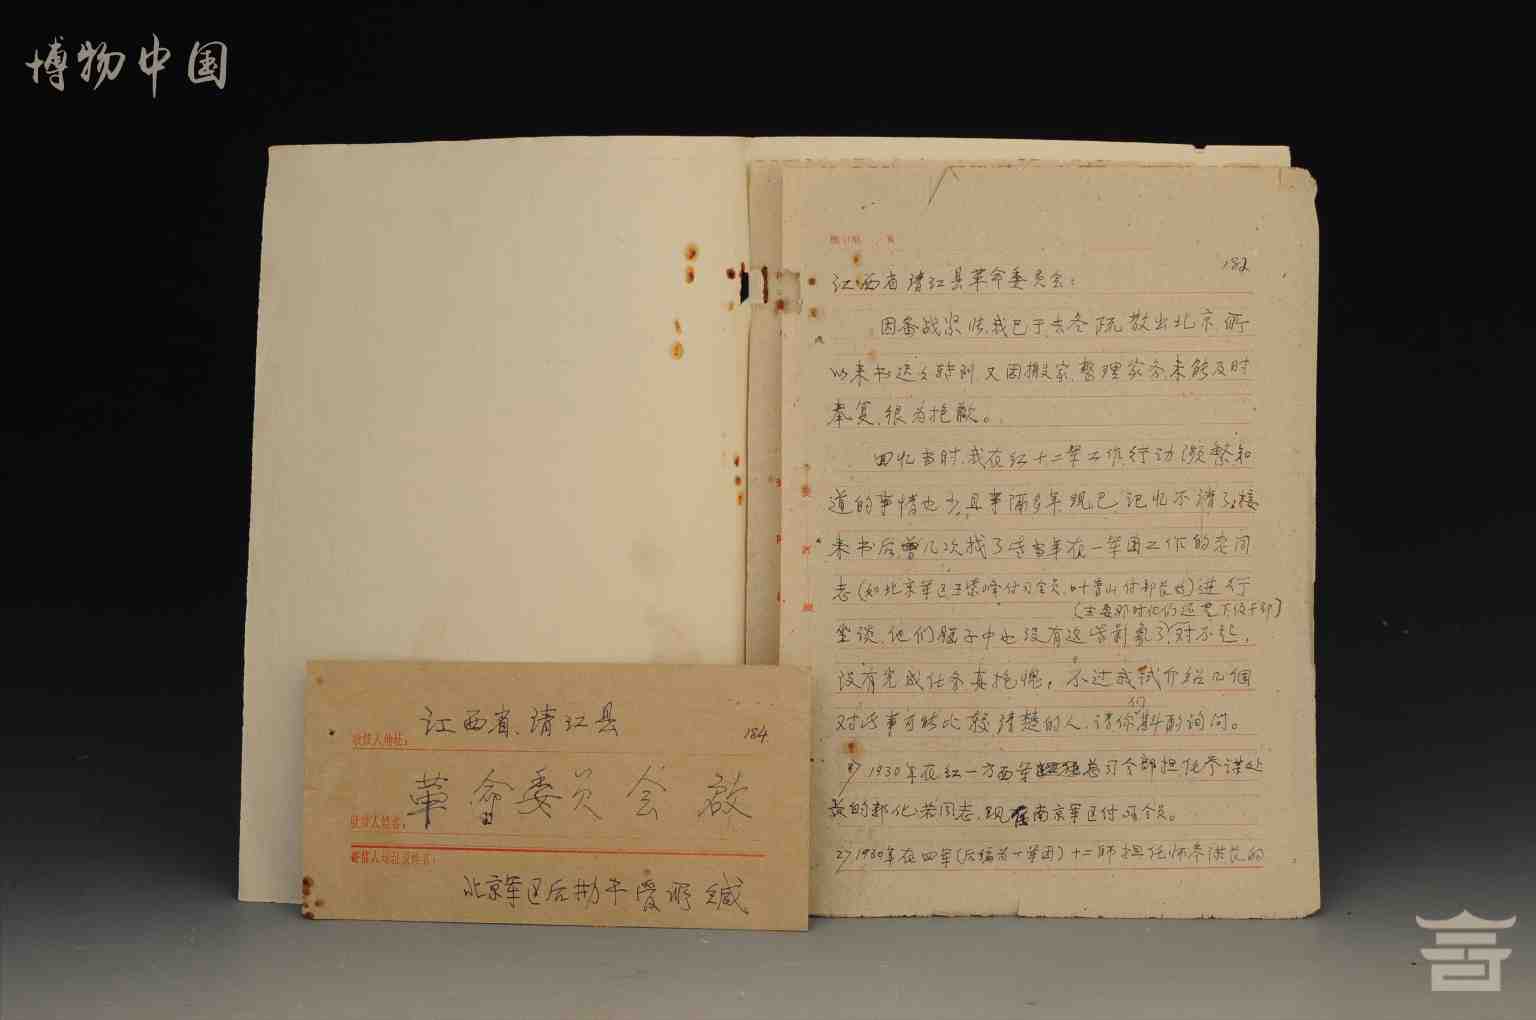 博物中国
182
江西省清江县革命委员会：
因备战紧张，我已于去冬疏散出北京，所
以来书迟迟转到，又因搬家，整理家务，未能及时
奉复，很为抱歉。
回忆当时，我在红十二军工作，行动频繁，知
道的事情也少，且事隔多年，现已记忆不清了，接
来书后，曾几次找了些当年在一军团工作的老同
志（如北京军区王紫峰付司令员，叶青山付部长等）进行
（主要那时他们还是下级干部）
坐谈，他们脑子中也没有这些影象了，对不起，
没有完成任务，真抱愧，不过我试介绍几个
对此事可能比较清楚的人，请你们斟酌询问。
1930年在红一方面军总司令部担任参谋处
长的郭化若同志，现在南京军区付司令员。
2）1930年在四军（后编为一军团）十二师担任师参谋长的
江西省、清江县
收信人地址：
184
革命委员会 啟
收信人姓名：
寄信人地址及姓名：
北京军区后勤 缄